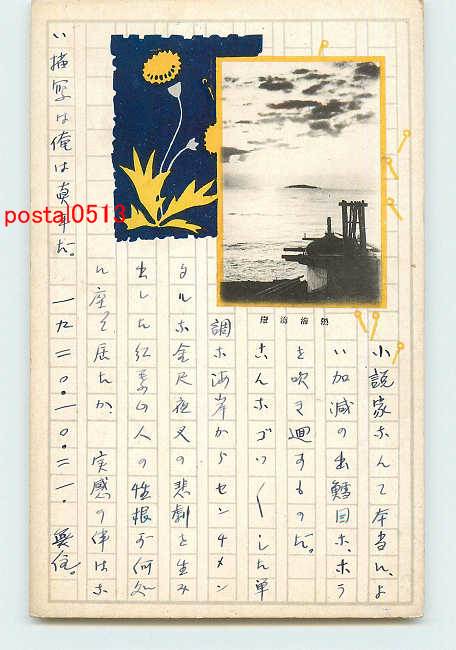 小説家なんて本当に、よ
い加減の出鱈目な、ホラ
を吹き廻すものだ。
こんなゴツ〱した単
調な海岸からセンチメン
タルな金色夜叉の悲劇を生み
出した紅葉山人の性根が何処
に座って居たか、 実感の伴はな
い描写は俺は真平だ。 一九二〇・一〇・二一.
postal0513